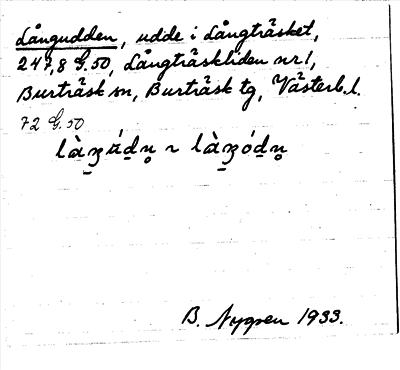 Långudden, udde i Långträsket,
247,8 G.50, Långträskliden nr 1,
Burträsk sn, Burträsk tg, Västerb.l.
72 G.50
B. Nygren 1933.